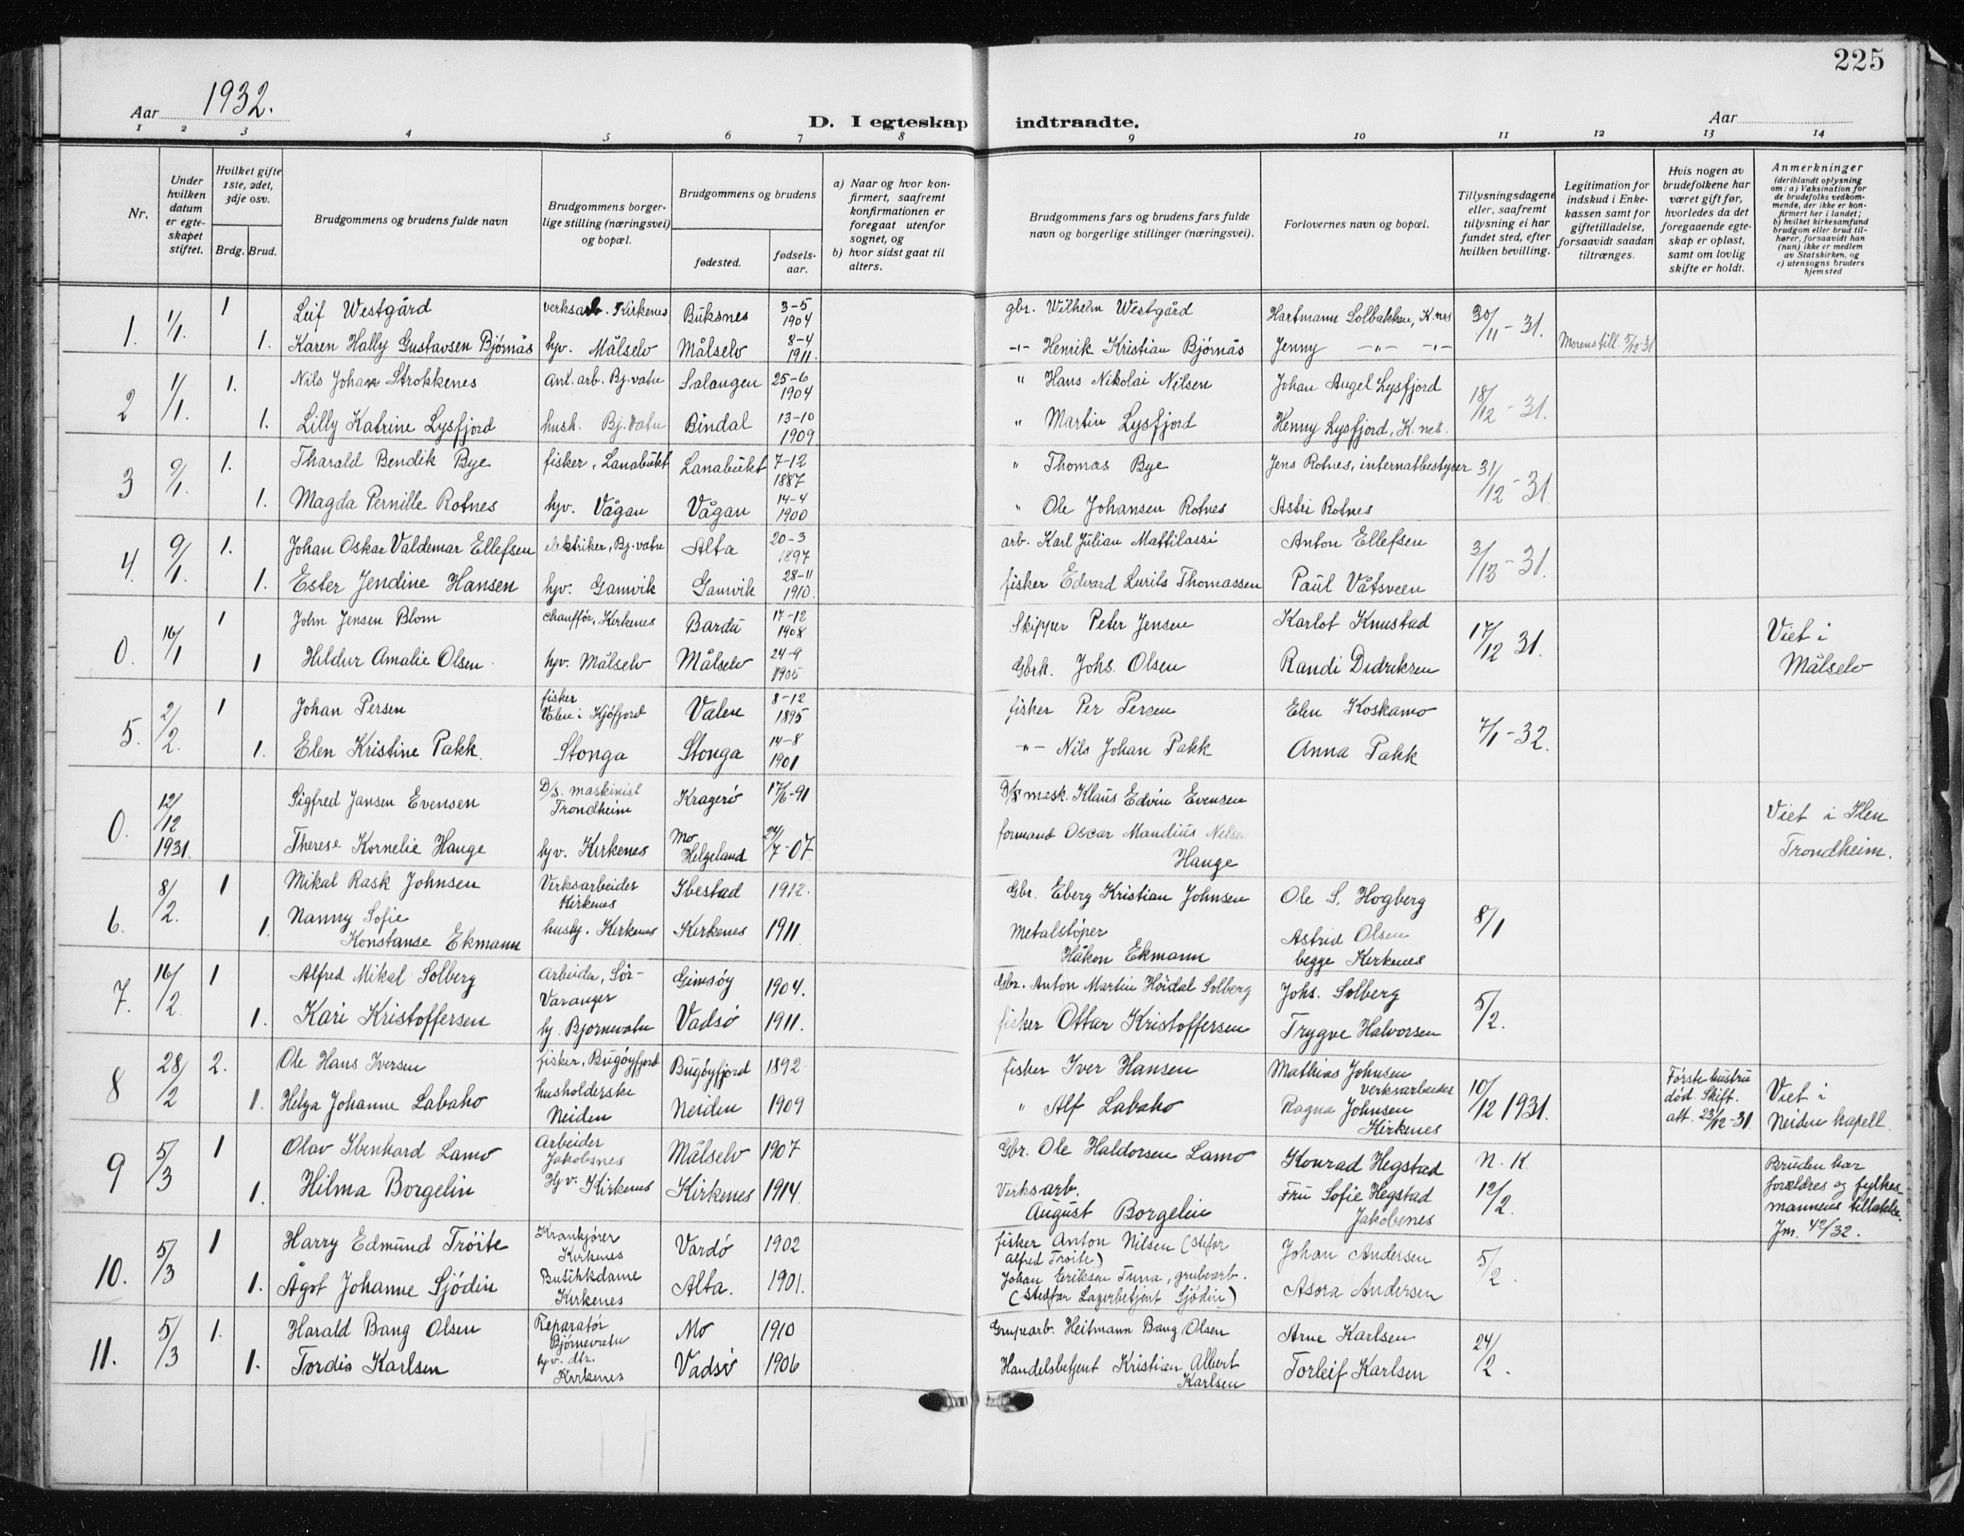 225
Aar 1932.
D. I egteskap indtraadte.
Aar
1 2 3 4 5 6 7 8 9 10 11 12 13 14
Nr.
Under hvilken datum er egteskapet stiftet.
Hvilket gifte 1ste, 2det, 3dje osv.
Brdg. Brud.
Brudgommens og brudens fulde navn
Brudgommens borgerlige stilling (næringsvei) og bopæl.
Brudgommens og brudens
fødested.
fødselsaar.
a) Naar og hvor konfirmert, saafremt konfirmationen er foregaat utenfor sognet, og
b) hvor sidst gaat til alters.
Brudgommens fars og brudens fars fulde navn og borgerlige stillinger (næringsvei).
Forlovernes navn og bopæl.
Tillysningsdagene eller, saafremt tillysning ei har fundet sted, efter hvilken bevilling.
Legitimation for indskud i Enkekassen samt for giftetilladelse, forsaavidt saadan tiltrænges.
Hvis nogen av brudefolkene har været gift før, hvorledes da det foregaaende egteskap er opløst, samt om lovlig skifte er holdt.
Anmerkninger (deriblandt oplysning om: a) Vaksination for de brudefolks vedkommende, der ikke er konfirmert her i landet; b) hvilket kirkesamfund brudgom eller brud tilhører, forsaavidt han (hun) ikke er medlem av Statskirken, og c) utensogns bruders hjemsted
1. 1/1 1 Leif Westgård verksarb. Kirkenes Buksnes 3-5 1904 gbr. Wilhelm Westgård Hartmann Solbakken, K.nes 30/11-31.
1. Karen Hally Gustavsen Bjørnås hjv. Målselv Målselv 8-4 1911. -"- Henrik Kristian Bjørnås Jenny -"- -"- Morens till. 5/12-31
2 1/1 1. Nils Johan Strokkenes Anl. arb. Bj.vatn Salangen 25-6 1904 " Hans Nikolai Nilsen Johan Angel Lysfjord 18/12-31.
1. Lilly Katrine Lysfjord hush. Bj.vatn Bindal 13-10 1909 " Martin Lysfjord Henny Lysfjord, K.nes.
3 9/1 1. Tharald Bendik Bye fisker, Lanabukt Lanabukt 7-12 1887 " Thomas Bye Jens Rotnes, internatbestyrer 31/12-31.
1. Magda Pernille Rotnes hjv. Vågan Vågan 14-4 1900 " Ole Johansen Rotnes Astri Rotnes
4. 9/1 1. Johan Oskar Valdemar Ellefsen elektriker, Bj.vatn Alta 20-3 1897 arb. Karl Julian Mattilassi Anton Ellefsen 31.
1. Ester Jendine Hansen hjv. Gamvik Gamvik 28-11 1910. fisker Edvard Thomassen Paul Våtsveen
0. 16/1 1 John Jensen Blom chauffør, Kirkenes Bardu 17-12 1908 Skipper Peter Jensen Karlot Knustad 17/12 31. Viet i
1 Hildur Amalie Olsen. hjv. Målselv Målselv 24-9 1905 Gbrk. Johs. Olsen Randi Didriksen Målselv
5. 2/2 1 Johan Persen fisker Valen i Kjøfjord Valen 8-12 1895 fisker Per Persen Elen Koskamo 7/1-32.
1. Elen Kristine Pakk. Stonga Stonga 14-8 1901 -"- Nils Johan Pakk Anna Pakk
0. 12/12 1931. Sigfred Jansen Evensen D/s. maskinist Trondheim Kragerø 17/6-91 D/s mask. Klaus Edvin Evensen Viet i Ilen
Therese Kornelie Hauge hjv. Kirkenes Mo Helgeland 24/7-07. formand Oscar Mandius Nilsen Hauge Trondheim.
6. 8/2. 1 Mikal Rask Johnsen Verksarbeider Kirkenes Ibestad 1912. Gbr. Eberg Kristian Johnsen Ole S. Hogberg 8/1
1. Nanny Sofie Konstanse Ekmann Kirkenes Kirkenes 1911. Metalstøper Håkon Ekmann Astrid Olsen begge Kirkenes
7. 16/2. 1 Alfred Mikal Solberg Arbeider, Sør-Varanger Gimsøy 1904. Gbr. Anton Martin Høidal Solberg Johs. Solberg 5/2.
1. Kari Kristoffersen hj. Bjørnevatn Vadsø 1911. fisker Ottar Kristoffersen Trygve Halvorsen
8 28/2 2. Ole Hans Iversen fisker, Bugøyfjord Bugøyfjord 1892 fisker Iver Hansen Mathias Johnsen verksarbeider 10/12 1931. Første hustru død. Skift. att. 23/12-31 Viet i
1. Helga Johanne Labaho husholderske Neiden Neiden 1909 " Alf Labaho Ragna Johnsen Kirkenes Neiden kapell.
9 5/3 1 Olav Ibenhard Lamo Arbeider Jakobsnes Målselv 1907 Gbr. Ole Haldorsen Lamo Konrad Hegstad N. K. 12/2. Bruden har forældres og fylkesmannens tillatelse. Jnr. 42/32.
1. Hilma Borgelin Hjv. Kirkenes Kirkenes 1914. Verksarb. August Borgelin Fru Sofie Hegstad Jakobsnes
10. 5/3 1 Harry Edmund Trøite Krankjører Kirkenes Vardø 1902 fisker Anton Nilsen (stefar Alfred Trøite) Johan Andersen 5/2.
1. Ågot Johanne Sjødin Butikkdame Kirkenes Alta. 1901. Johan Eriksen Tuna, grubearb. (stefar Lagerbetjent Sjødin) Asora Andersen
11. 5/3 1. Harald Bang Olsen Reparatør Bjørnevatn Mo 1910 Grupearb. Heitmann Bang Olsen Arne Karlsen 24/2.
1. Tordis Karlsen hjv. dtr. Kirkenes Vadsø 1906 Handelsbetjent Kristian Albert Karlsen Torleif Karlsen